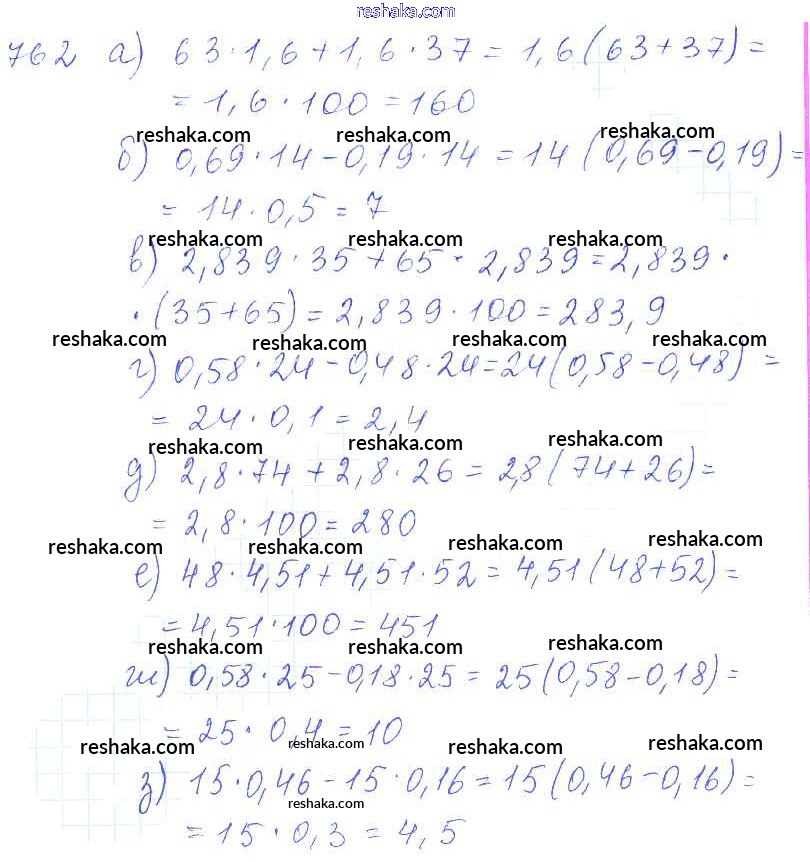 reshaka.com
762 а) 63·1,6+1,6·37=1,6(63+37)=
=1,6·100=160
reshaka.com reshaka.com reshaka.com
б) 0,69·14-0,19·14=14(0,69-0,19)=
=14·0,5=7
reshaka.com reshaka.com reshaka.com
в) 2,839·35+65·2,839=2,839·
·(35+65)=2,839·100=283,9
reshaka.com reshaka.com reshaka.com reshaka.com
г) 0,58·24-0,48·24=24(0,58-0,48)=
=24·0,1=2,4
reshaka.com reshaka.com reshaka.com
д) 2,8·74+2,8·26=2,8(74+26)=
=2,8·100=280
reshaka.com reshaka.com reshaka.com reshaka.com
е) 48·4,51+4,51·52=4,51(48+52)=
=4,51·100=451
reshaka.com reshaka.com reshaka.com
ж) 0,58·25-0,18·25=25(0,58-0,18)=
=25·0,4=10
reshaka.com reshaka.com reshaka.com reshaka.com
з) 15·0,46-15·0,16=15(0,46-0,16)=
reshaka.com
=15·0,3=4,5